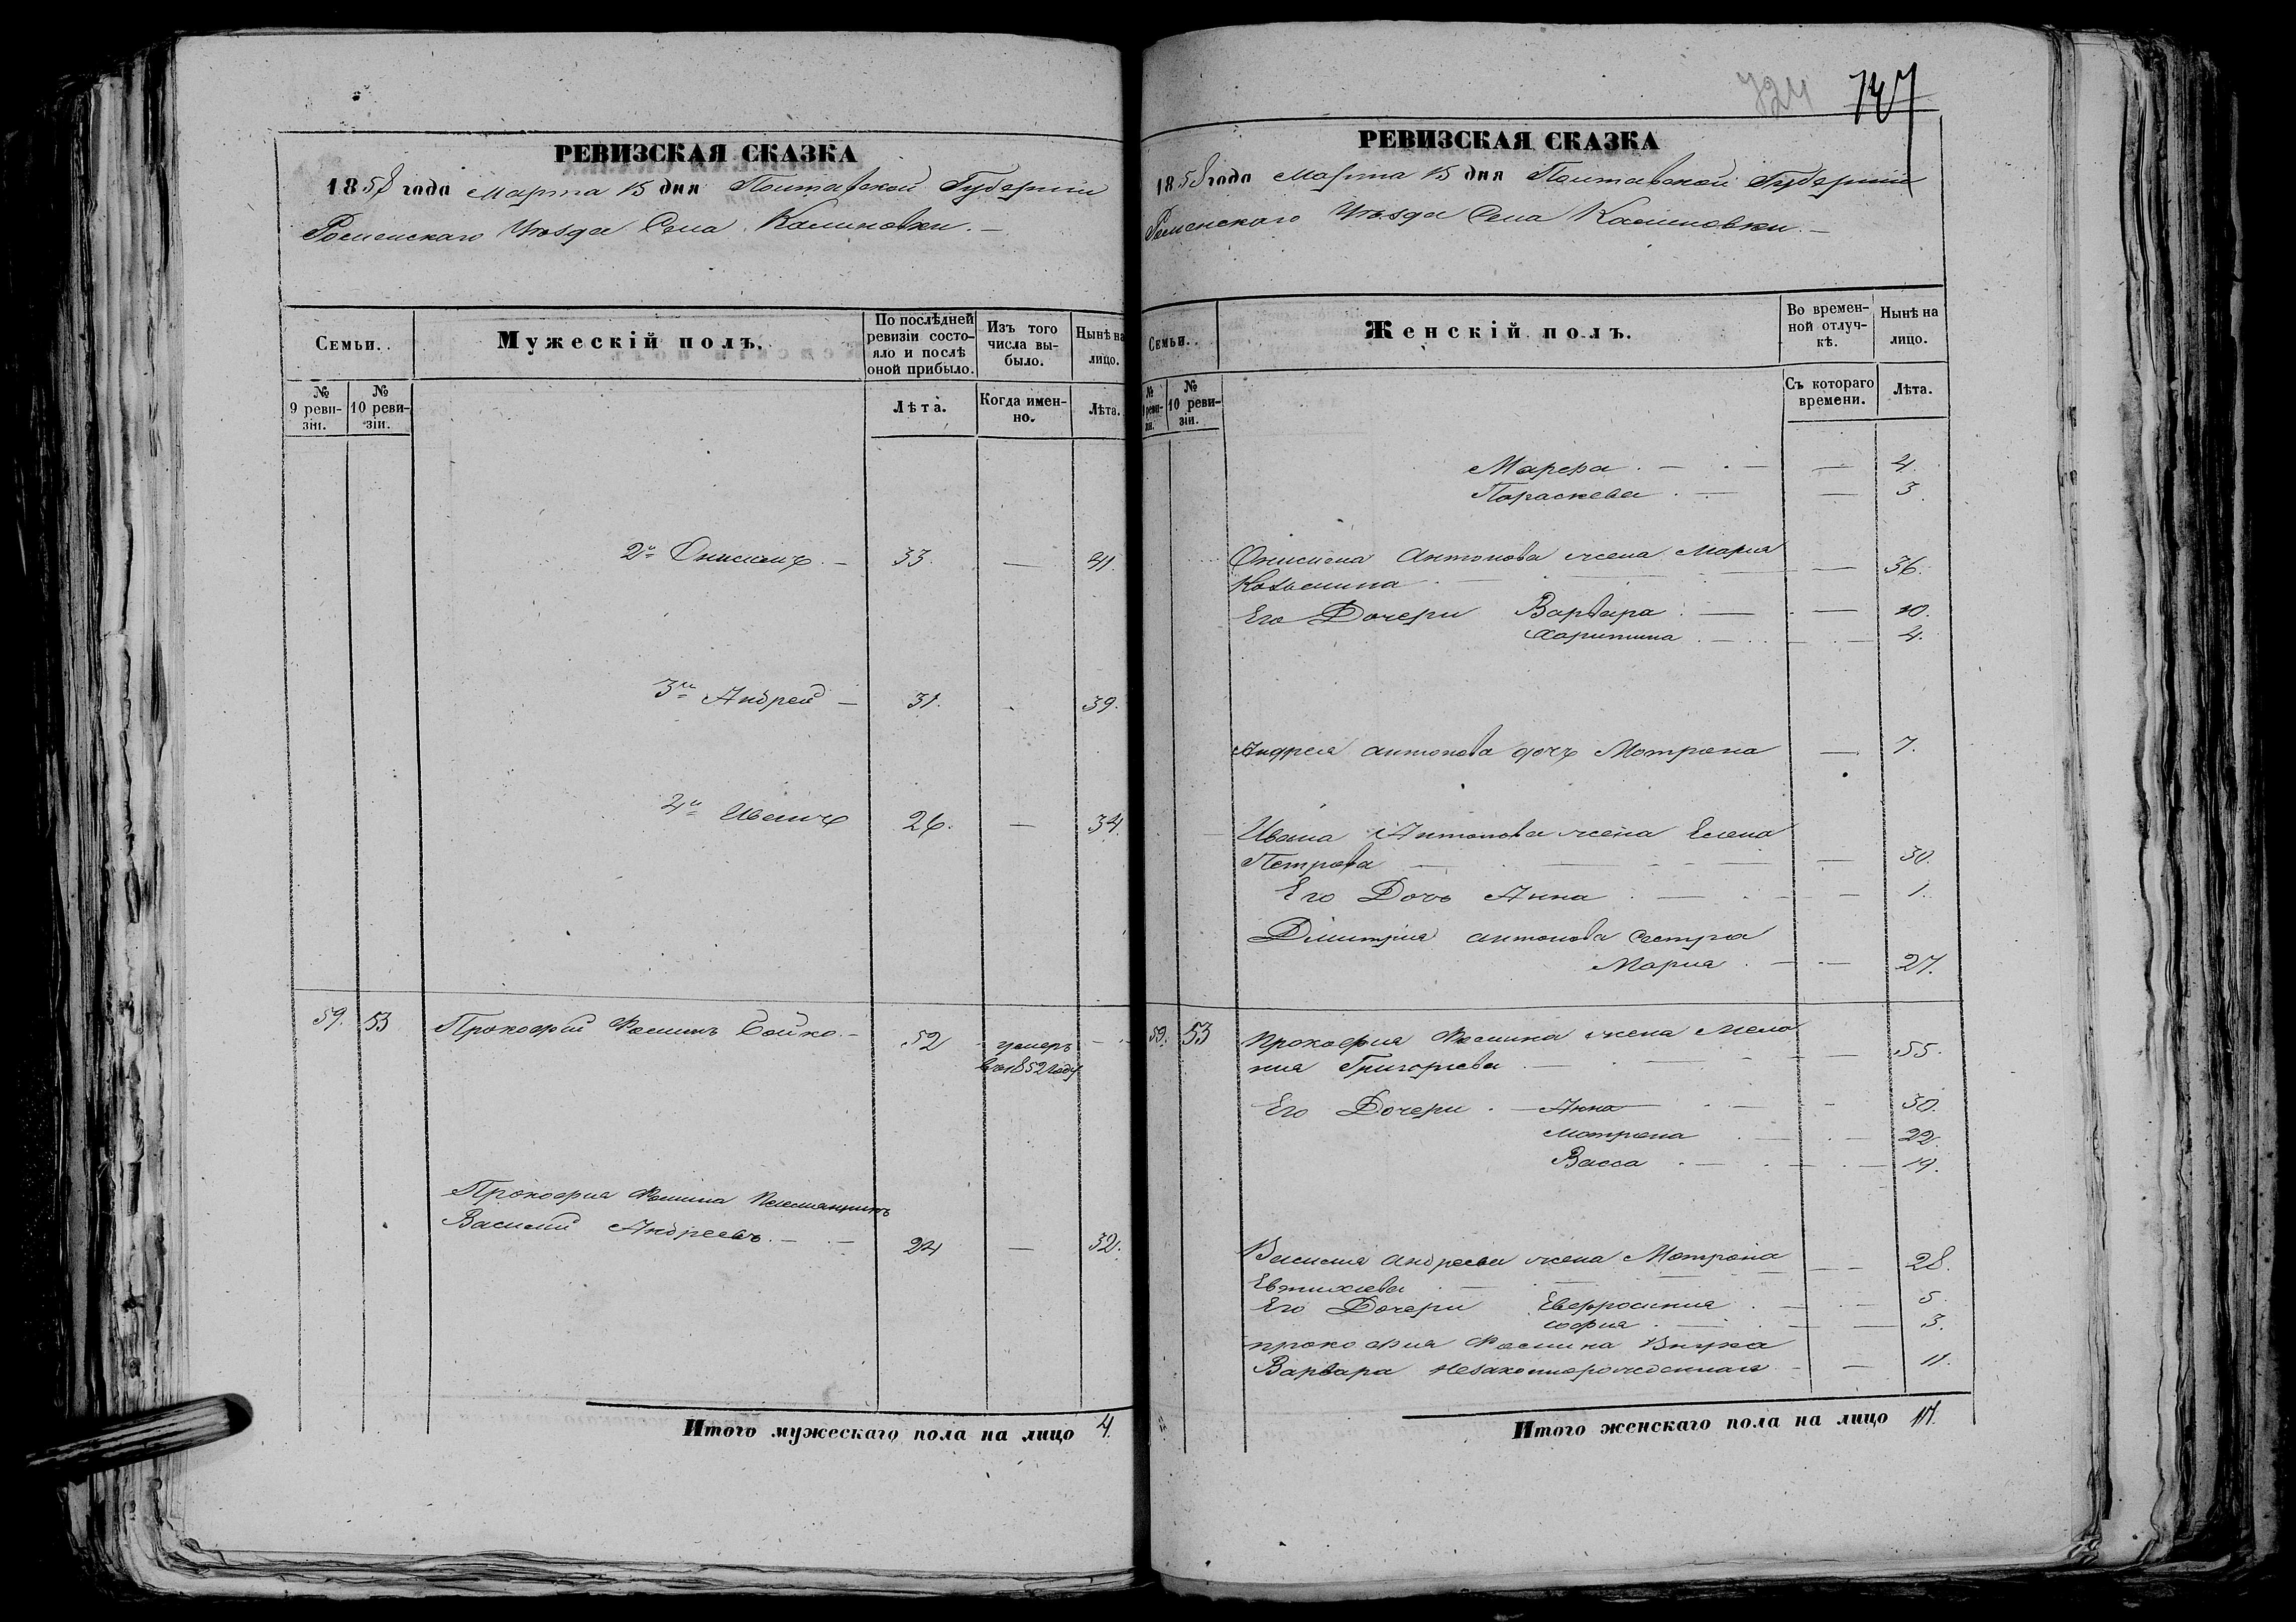 РЕВИЗСКАЯ СКАЗКА
1858 года Марта 15 дня Полтавской Губернии
Роменскаго Уѣзда Села Калиновки.
Семьи.
Мужескій полъ.
По послѣдней ревизіи состояло и послѣ оной прибыло.
Изъ того числа выбыло.
Нынѣ на лицо.
№ 9 ревизіи.
№ 10 ревизіи.
Лѣта.
Когда именно.
Лѣта.
2й Онисимъ. — 33. — 41.
3й Андрей — 31. — 39.
4й Иванъ 26. — 34.
59. 53 Прокофій Фоминъ Бойко. — 52 умеръ
въ 1852 году
Прокофія Фомина Племянникъ
Василій Андреевъ. — 24 — 32.
Итого мужескаго пола на лицо 4.
724 747
РЕВИЗСКАЯ СКАЗКА
1858 года Марта 15 дня Полтавской Губернии
Роменскаго Уѣзда Села Калиновки. —
Семьи.
Женскій полъ.
Во временной отлучкѣ.
Нынѣ на лицо.
№ 9 ревизіи.
№ 10 ревизіи.
Съ котораго времени.
Лѣта.
Марфа — 4.
Параскева — 3
Онисима Антонова жена Мария
Козьмина — 36.
Его Дочери Варвара — 10.
Харитина — 4.
Андрея Антонова дочъ Мотрона — 7.
Ивана Антонова жена Елена
Петрова — 30.
Его Дочь Анна — 1.
Дмитрія Антонова Сестра
Мария — 27.
59. 53 Прокофия Фомина жена Мела
ния Григорьева — 55.
Его Дочери — Анна — 30.
Мотрона — 22.
Васса — 19.
Василия Андреева жена Мотрона — 28.
Евтихиева
Его Дочери Евфросиния — 5
София — 3.
Прокофия Фомина Внучка
Варвара Незаконнорожденная — 11.
Итого женскаго пола на лицо 17.